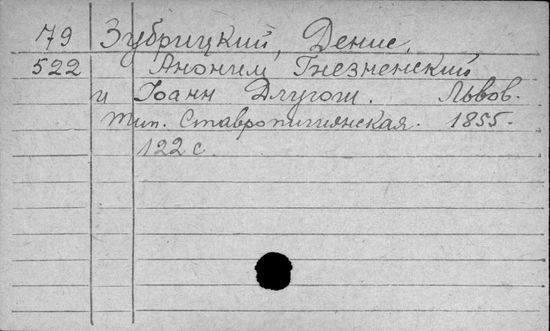 79 Зубрицкий, Денис.
522 Аноним Гнезненский
и Іоанн Длугош. Львов.
тип. Ставропигиянская. 1855.
122 с